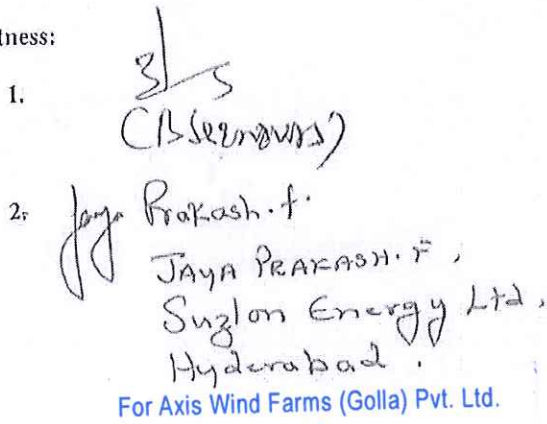 tness:
1.
(B
2. Jaya Prakash.f.
JAYA PRAKASH.F,
Suzlon Energy Ltd,
Hyderabad.
For Axis Wind Farms (Golla) Pvt. Ltd.